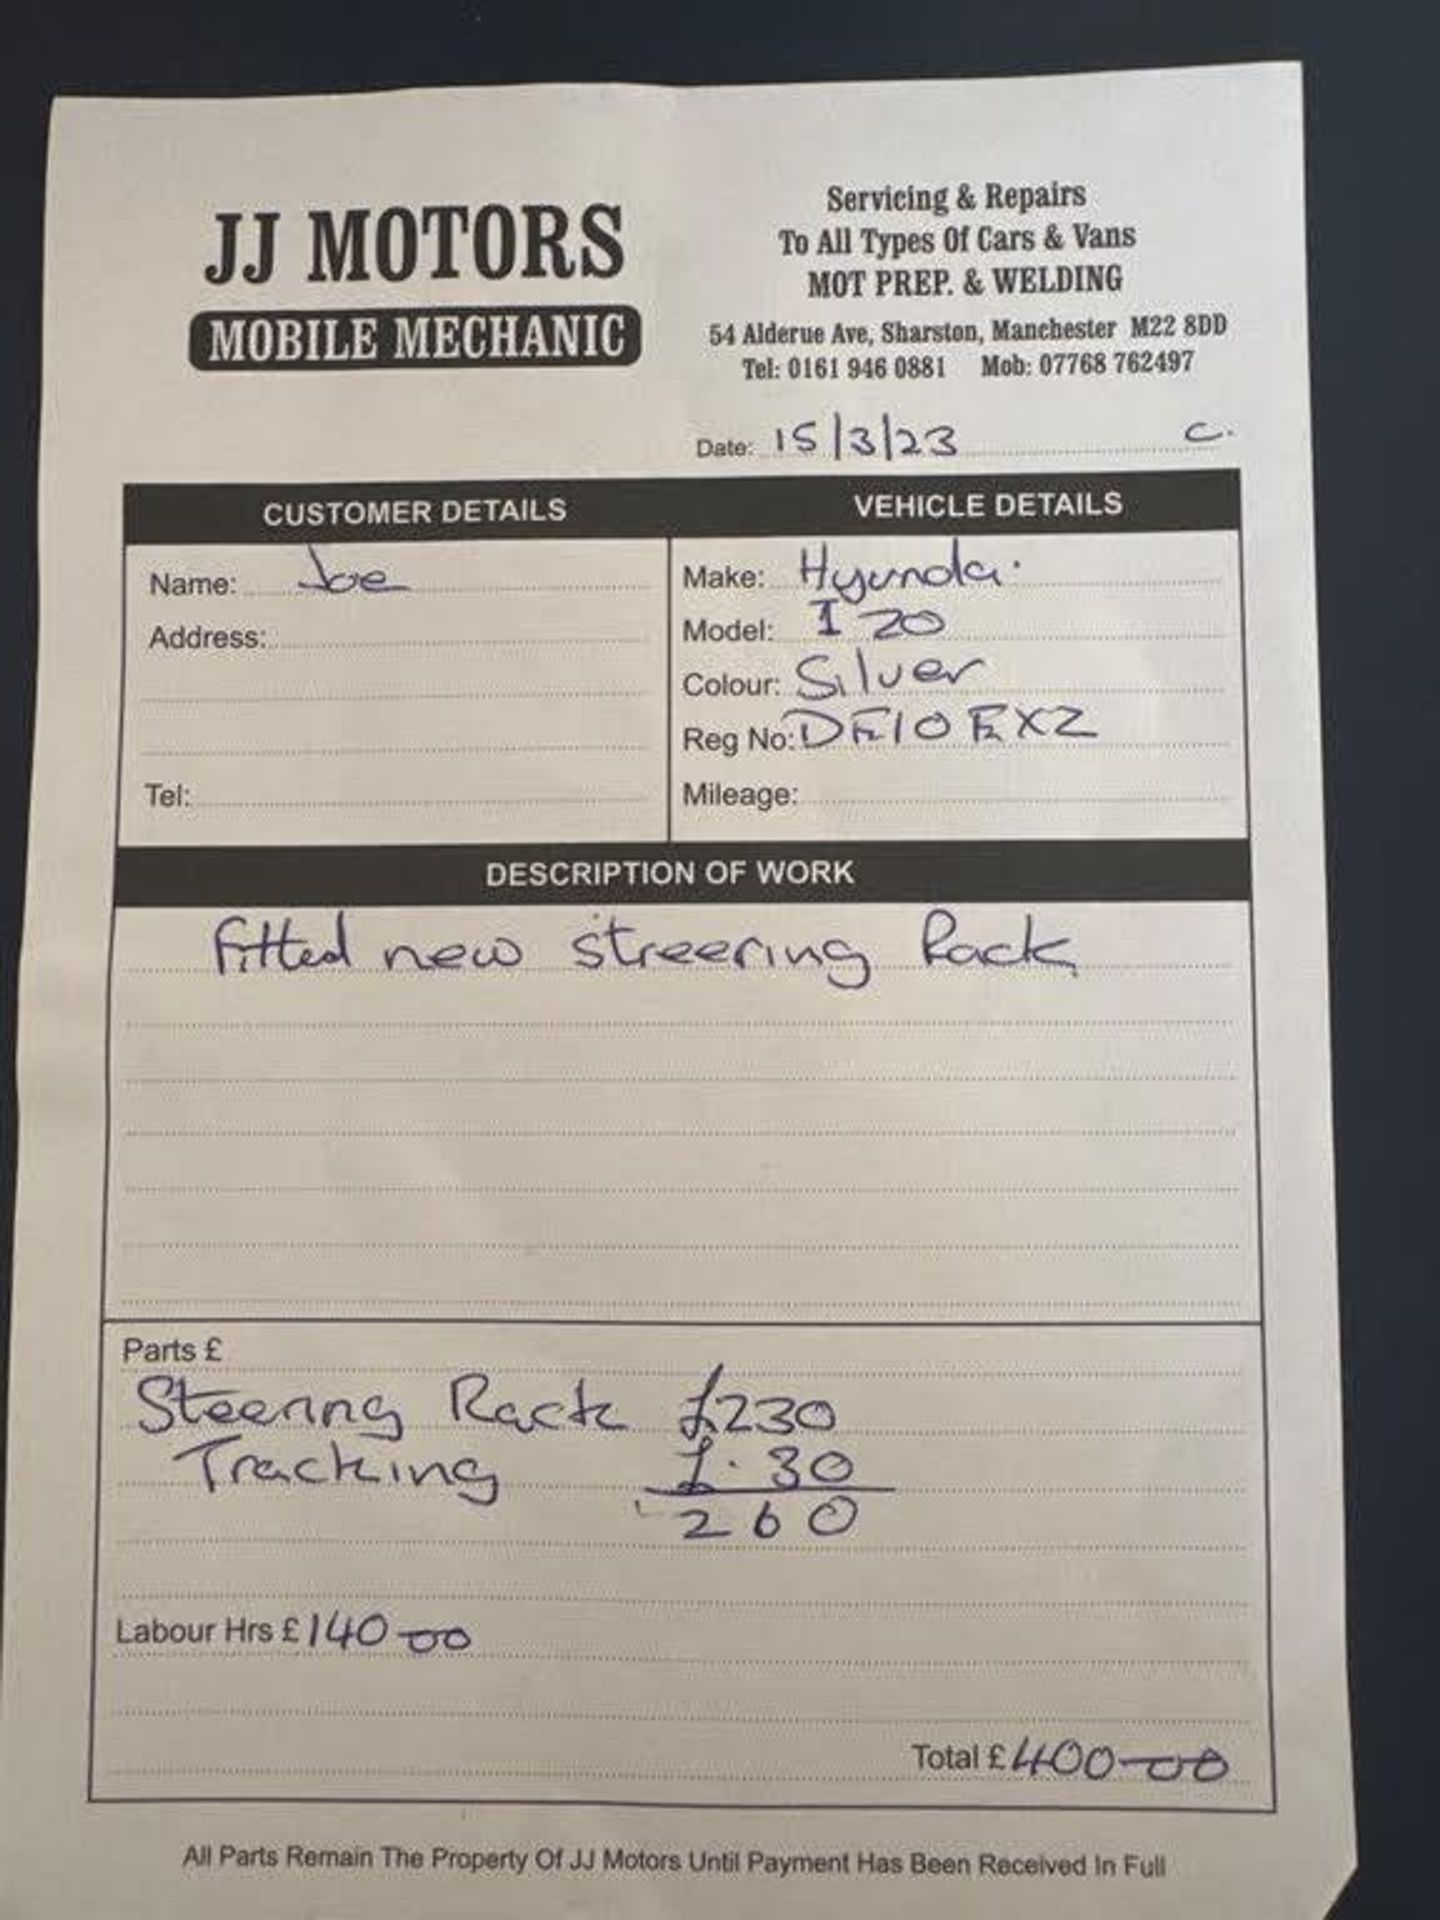 JJ MOTORS
MOBILE MECHANIC
Servicing & Repairs
To All Types Of Cars & Vans
MOT PREP. & WELDING
54 Alderue Ave, Sharston, Manchester M22 8DD
Tel: 0161 946 0881 Mob: 07768 762497
Date: 15/3/23 C.
CUSTOMER DETAILS
Name: Joe
Address:
Tel:
VEHICLE DETAILS
Make: Hyundai
Model: I 20
Colour: Silver
Reg No: DE10 EXZ
Mileage:
DESCRIPTION OF WORK
fitted new streering Rack
Parts £
Steering Rack £230
Tracking £.30
260
Labour Hrs £ 140-00
Total £ 400-00
All Parts Remain The Property Of JJ Motors Until Payment Has Been Received In Full